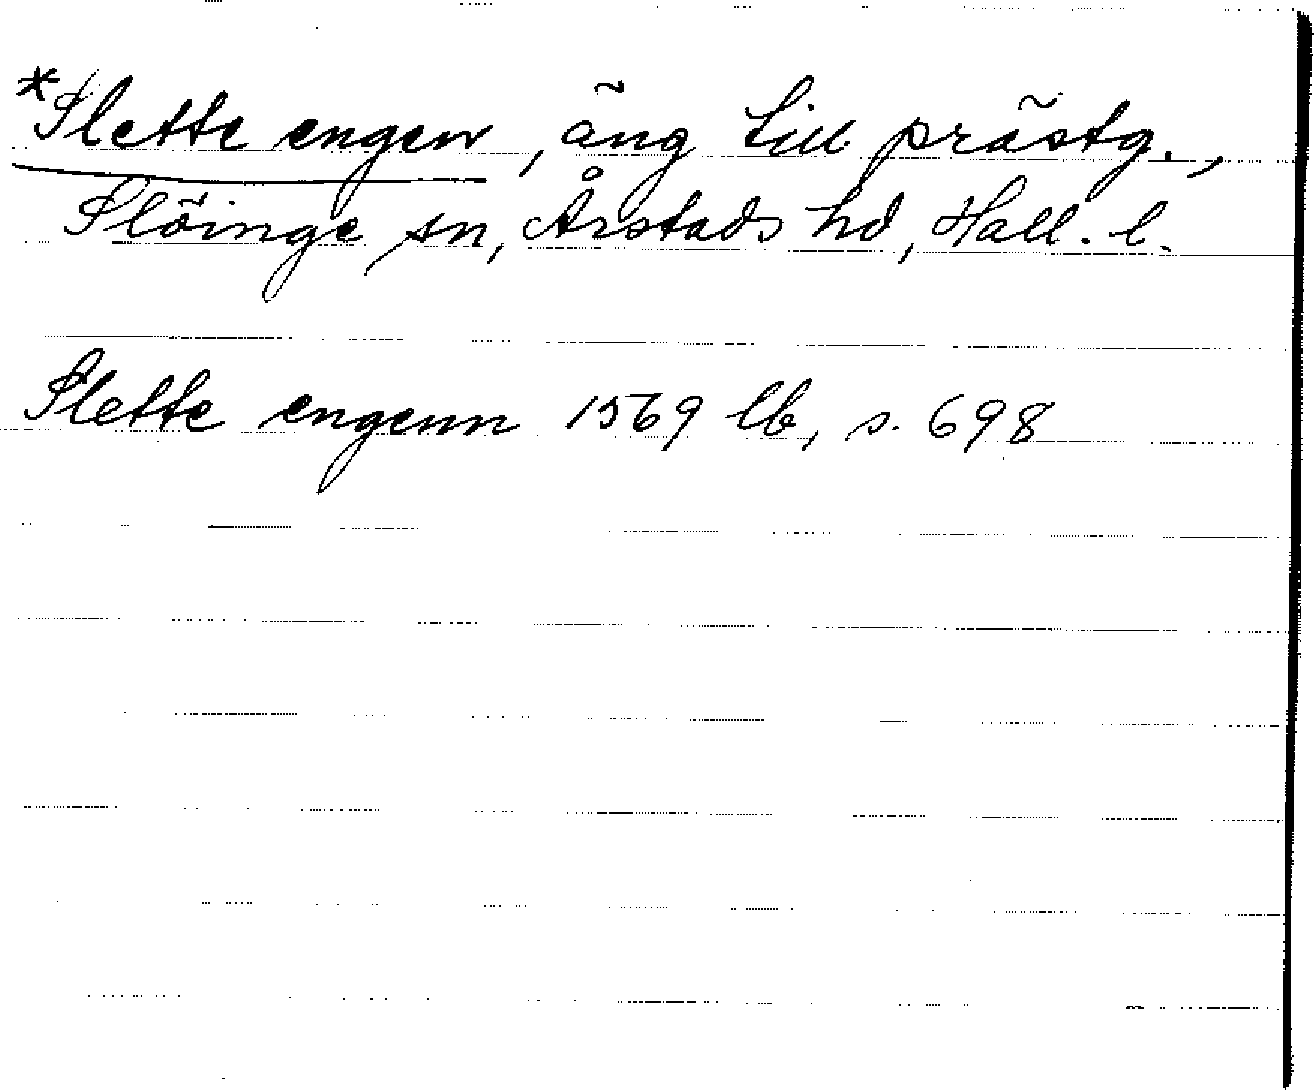 *Slette engen, äng till prästg.,
Slöinge sn, Årstads hd, Hall. l.
Slette engenn 1569 lb, s. 698